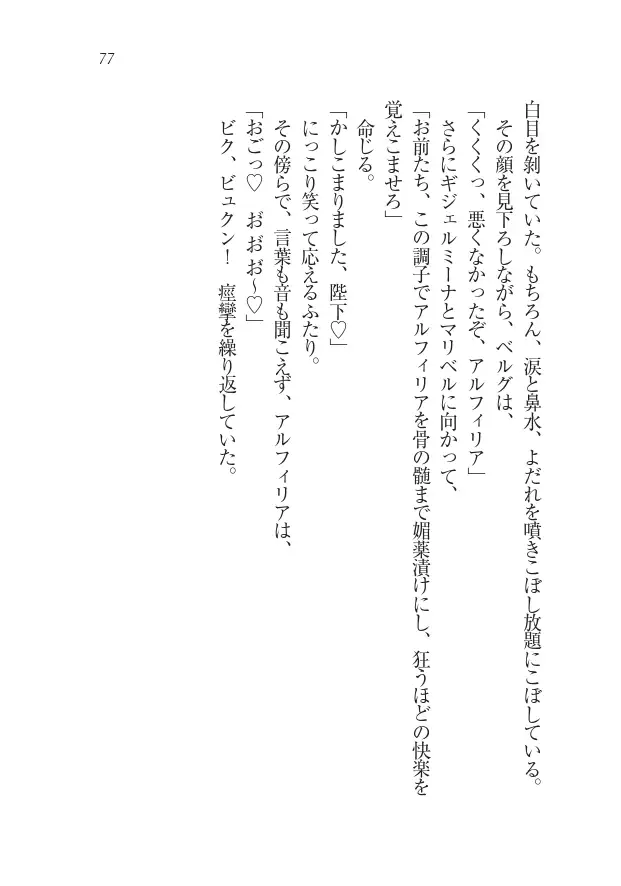 77
白目を剥いていた。もちろん、涙と鼻水、よだれを噴きこぼし放題にこぼしている。
その顔を見下ろしながら、ベルグは、
「くくくっ、悪くなかったぞ、アルフィリア」
さらにギジェルミーナとマリベルに向かって、
「お前たち、この調子でアルフィリアを骨の髄まで媚薬漬けにし、狂うほどの快楽を
覚えこませろ」
命じる。
「かしこまりました、陛下♡」
にっこり笑って応えるふたり。
その傍らで、言葉も音も聞こえず、アルフィリアは、
「おごっ♡　お゙お゙お゙～♡」
ビク、ビュクン！　痙攣を繰り返していた。